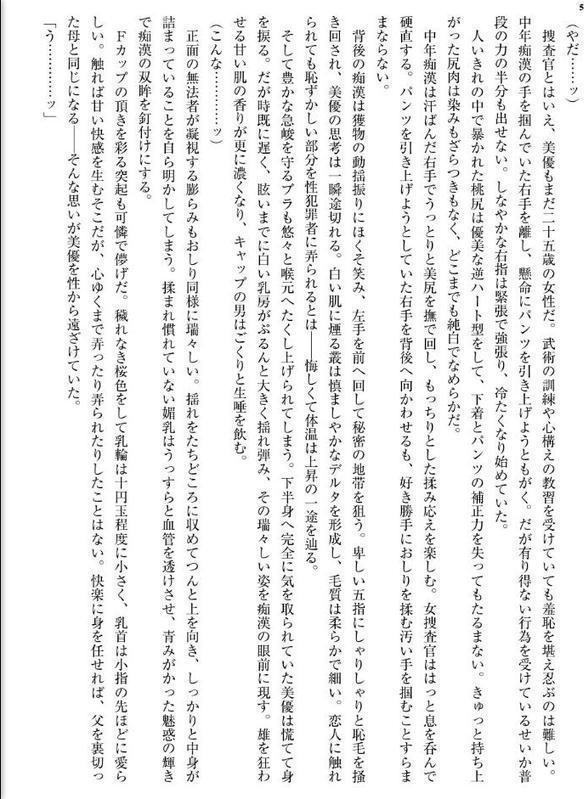 5
(やだ……ッ)
　捜査官とはいえ、美優もまだ二十五歳の女性だ。武術の訓練や心構えの教習を受けていても羞恥を堪え忍ぶのは難しい。
中年痴漢の手を掴んでいた右手を離し、懸命にパンツを引き上げようともがく。だが有り得ない行為を受けているせいか普
段の力の半分も出せない。しなやかな右指は緊張で強張り、冷たくなり始めていた。
　人いきれの中で暴かれた桃尻は優美な逆ハート型をして、下着とパンツの補正力を失ってもたるまない。きゅっと持ち上
がった尻肉は染みもざらつきもなく、どこまでも純白でなめらかだ。
　中年痴漢は汗ばんだ右手でうっとりと美尻を撫で回し、もっちりとした揉み応えを楽しむ。女捜査官ははっと息を呑んで
硬直する。パンツを引き上げようとしていた右手を背後へ向かわせるも、好き勝手におしりを揉む汚い手を掴むことすらま
まならない。
　背後の痴漢は獲物の動揺振りにほくそ笑み、左手を前へ回して秘密の地帯を狙う。卑しい五指にしゃりしゃりと恥毛を掻
き回され、美優の思考は一瞬途切れる。白い肌に煙る叢は慎ましやかなデルタを形成し、毛質は柔らかで細い。恋人に触れ
られても恥ずかしい部分を性犯罪者に弄られるとは――悔しくて体温は上昇の一途を辿る。
　そして豊かな急峻を守るブラも悠々と喉元へたくし上げられてしまう。下半身へ完全に気を取られていた美優は慌てて身
を振る。だが時既に遅く、眩いまでに白い乳房がぷるんと大きく揺れ弾み、その瑞々しい姿を痴漢の眼前に現す。雄を狂わ
せる甘い肌の香りが更に濃くなり、キャップの男はごくりと生唾を飲む。
(こんな…………ッ)
　正面の無法者が凝視する膨らみもおしり同様に瑞々しい。揺れをたちどころに収めてつんと上を向き、しっかりと中身が
詰まっていることを自ら明かしてしまう。揉まれ慣れていない媚乳はうっすらと血管を透けさせ、青みがかった魅惑の輝き
で痴漢の双眸を釘付けにする。
　Ｆカップの頂きを彩る突起も可憐で儚げだ。穢れなき桜色をして乳輪は十円玉程度に小さく、乳首は小指の先ほどに愛ら
しい。触れば甘い快感を生むそこだが、心ゆくまで弄ったり弄られたりしたことはない。快楽に身を任せれば、父を裏切っ
た母と同じになる――そんな思いが美優を性から遠ざけていた。
「う…………ッ」